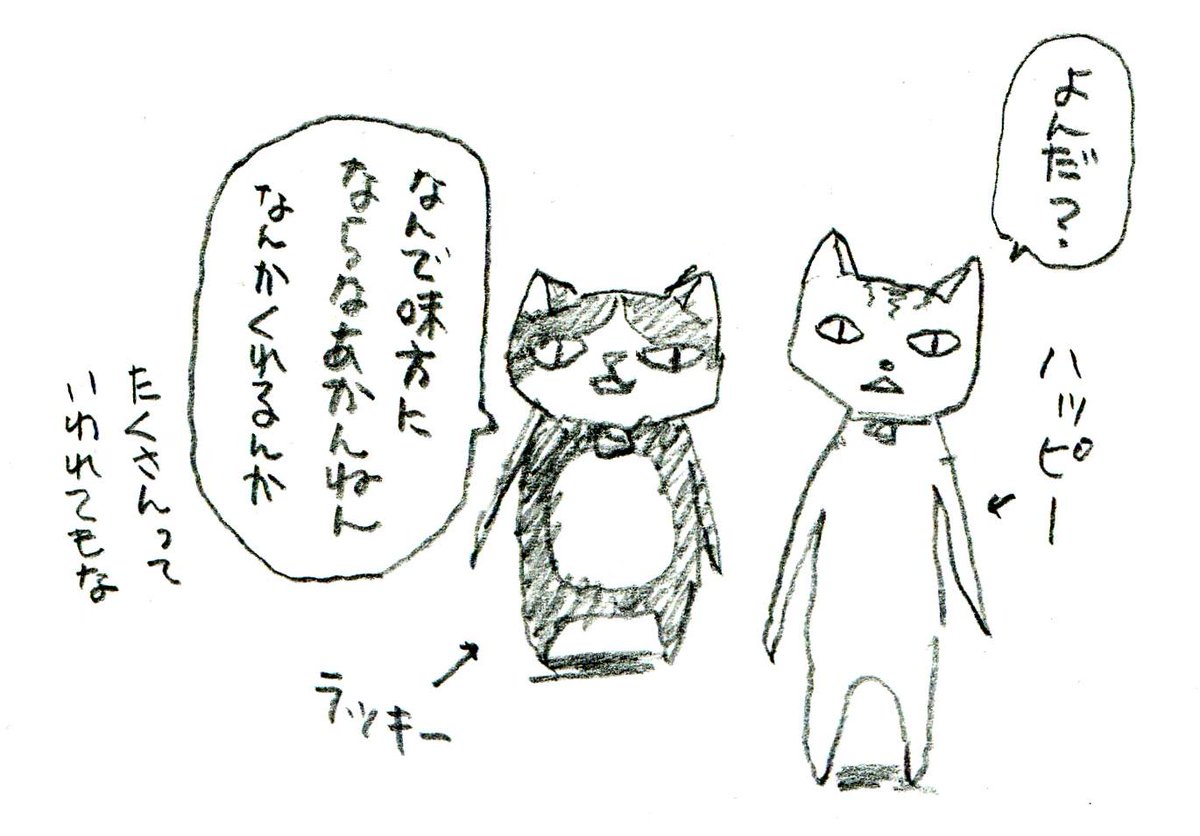 よんだ?
ハッピー
なんで味方に
ならなあかんねん
なんかくれるんか
ラッキー
たくさんって
いわれてもな